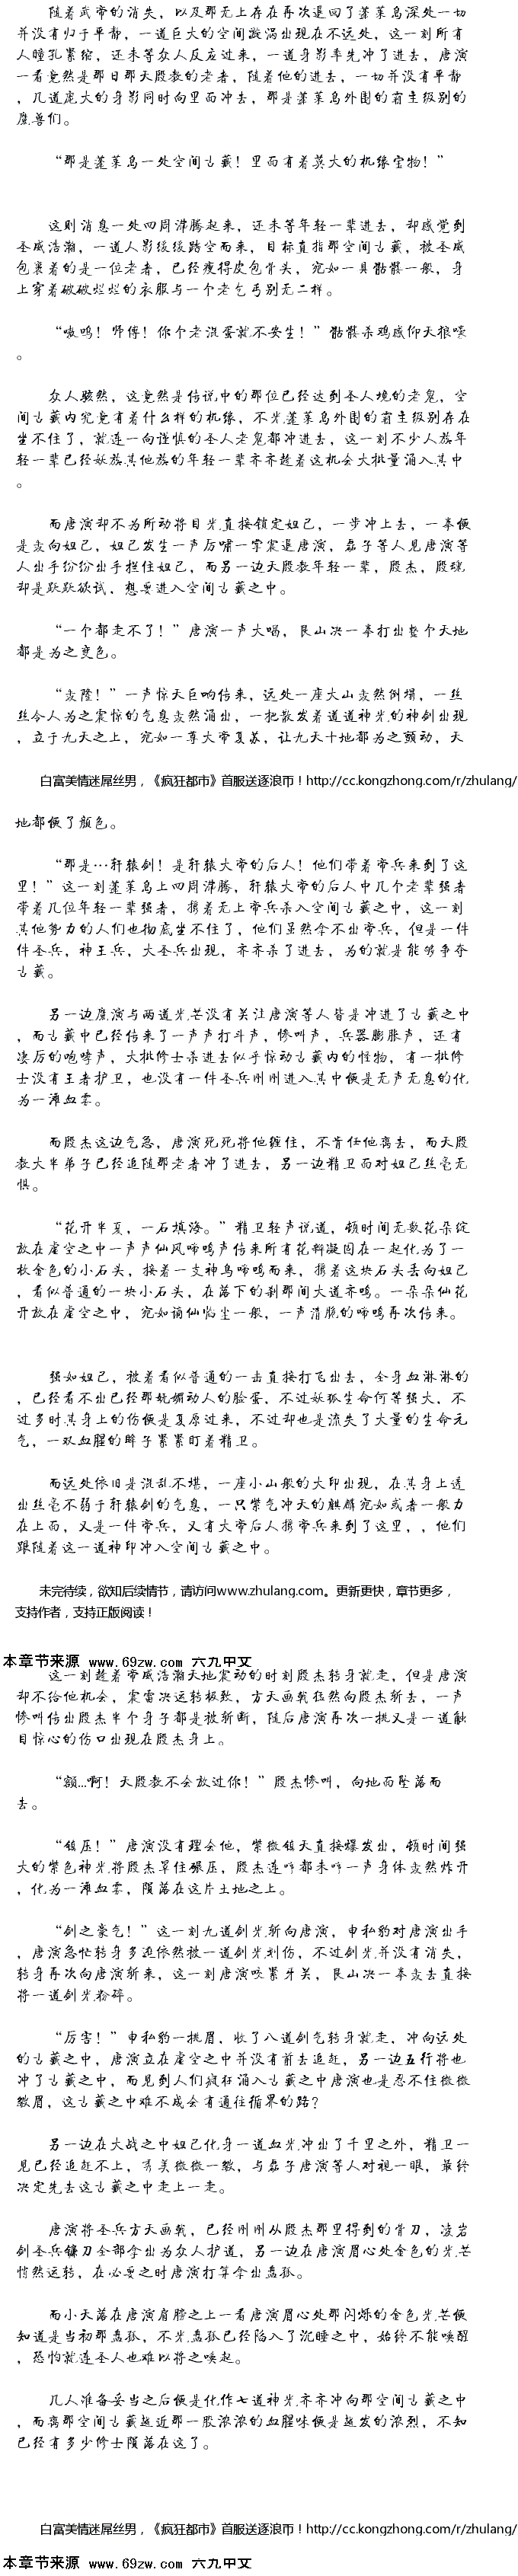 随着武帝的消失，以及那无上存在再次退回了蓬莱岛深处一切
并没有归于平静，一道巨大的空间漩涡出现在不远处，这一刻所有
人瞳孔紧缩，还未等众人反应过来，一道身影率先冲了进去，唐演
一看竟然是那日那天殿教的老者，随着他的进去，一切并没有平静
，几道庞大的身影同时向里面冲去，那是蓬莱岛外围的霸主级别的
魔兽们。
“那是蓬莱岛一处空间古藏！里面有着莫大的机缘宝物！”
这则消息一处四周沸腾起来，还未等年轻一辈进去，却感觉到
圣威浩瀚，一道人影缓缓踏空而来，目标直指那空间古藏，被圣威
包裹着的是一位老者，已经瘦得皮包骨头，宛如一具骷髅一般，身
上穿着破破烂烂的衣服与一个老乞丐别无二样。
“嗷呜！师傅！你个老混蛋就不安生！”骷髅杀鸡感仰天狼嚎
。
众人骇然，这竟然是传说中的那位已经达到圣人境的老鬼，空
间古藏内究竟有着什么样的机缘，不光蓬莱岛外围的霸主级别存在
坐不住了，就连一向谨慎的圣人老鬼都冲进去，这一刻不少人族年
轻一辈已经妖族其他族的年轻一辈齐齐趁着这机会大批量涌入其中
。
而唐演却不为所动将目光直接锁定妲己，一步冲上去，一拳便
是轰向妲己，妲己发生一声厉啸一掌震退唐演，磊子等人见唐演等
人出手纷纷出手拦住妲己，而另一边天殿教年轻一辈，殷杰，殷魂
却是跃跃欲试，想要进入空间古藏之中。
“一个都走不了！”唐演一声大喝，艮山决一拳打出整个天地
都是为之变色。
“轰隆！”一声惊天巨响传来，远处一座大山轰然倒塌，一丝
丝令人为之震惊的气息轰然涌出，一把散发着道道神光的神剑出现
，立于九天之上，宛如一尊大帝复苏，让九天十地都为之颤动，天
白富美情迷屌丝男，《疯狂都市》首服送逐浪币！http://cc.kongzhong.com/r/zhulang/
地都便了颜色。
“那是…轩辕剑！是轩辕大帝的后人！他们带着帝兵来到了这
里！”这一刻蓬莱岛上四周沸腾，轩辕大帝的后人中几个老辈强者
带着几位年轻一辈强者，携着无上帝兵杀入空间古藏之中，这一刻
其他努力的人们也彻底坐不住了，他们虽然拿不出帝兵，但是一件
件圣兵，神王兵，大圣兵出现，齐齐杀了进去，为的就是能够争夺
古藏。
另一边魔演与两道光芒没有关注唐演等人皆是冲进了古藏之中
，而古藏中已经传来了一声声打斗声，惨叫声，兵器膨胀声，还有
凄厉的咆哮声，大批修士杀进去似乎惊动古藏内的怪物，有一批修
士没有王者护卫，也没有一件圣兵刚刚进入其中便是无声无息的化
为一滩血雾。
而殷杰这边气急，唐演死死将他缠住，不肯任他离去，而天殿
教大半弟子已经追随那老者冲了进去，另一边精卫面对妲己丝毫无
惧。
“花开半夏，一石填海。”精卫轻声说道，顿时间无数花朵绽
放在虚空之中一声声仙凤啼鸣声传来所有花瓣凝固在一起化为了一
枚金色的小石头，接着一支神鸟啼鸣而来，携着这块石头丢向妲己
，看似普通的一块小石头，在落下的刹那间大道齐鸣。一朵朵仙花
开放在虚空之中，宛如谪仙临尘一般，一声清脆的啼鸣再次传来。
强如妲己，被着看似普通的一击直接打飞出去，全身血淋淋的
，已经看不出已经那妩媚动人的脸蛋，不过妖狐生命何等强大，不
过多时其身上的伤便是复原过来，不过却也是流失了大量的生命元
气，一双血腥的眸子紧紧盯着精卫。
而远处依旧是混乱不堪，一座小山般的大印出现，在其身上透
出丝毫不弱于轩辕剑的气息，一只紫气冲天的麒麟宛如或者一般力
在上面，又是一件帝兵，又有大帝后人携帝兵来到了这里，，他们
跟随着这一道神印冲入空间古藏之中。
未完待续，欲知后续情节，请访问www.zhulang.com。更新更快，章节更多，
支持作者，支持正版阅读！
本章节来源 www.69zw.com 六九中文
这一刻趁着帝威浩瀚天地震动的时刻殷杰转身就走，但是唐演
却不给他机会，震雷决运转极致，方天画戟狂然向殷杰斩去，一声
惨叫传出殷杰半个身子都是被斩断，随后唐演再次一挑又是一道触
目惊心的伤口出现在殷杰身上。
“额...啊！天殿教不会放过你！”殷杰惨叫，向地面坠落而
去。
“镇压！”唐演没有理会他，紫微镇天直接爆发出，顿时间强
大的紫色神光将殷杰罩住碾压，殷杰连吽都未吽一声身体轰然炸开
，化为一滩血雾，陨落在这片土地之上。
“剑之豪气！”这一刻九道剑光斩向唐演，申私豹对唐演出手
，唐演急忙转身多返依然被一道剑光刺伤，不过剑光并没有消失，
转身再次向唐演斩来，这一刻唐演咬紧牙关，艮山决一拳轰去直接
将一道剑光粉碎。
“厉害！”申私豹一挑眉，收了八道剑气转身就走，冲向远处
的古藏之中，唐演立在虚空之中并没有前去追赶，另一边五行将也
冲了古藏之中，而见到人们疯狂涌入古藏之中唐演也是忍不住微微
皱眉，这古藏之中难不成会有通往循界的路？
另一边在大战之中妲己化身一道血光冲出了千里之外，精卫一
见已经追赶不上，秀美微微一皱，与磊子唐演等人对视一眼，最终
决定先去这古藏之中走上一走。
唐演将圣兵方天画戟，已经刚刚从殷杰那里得到的骨刀，凌岩
剑圣兵镰刀全部拿出为众人护道，另一边在唐演眉心处金色的光芒
悄然运转，在必要之时唐演打算拿出盘弧。
而小天落在唐演肩膀之上一看唐演眉心处那闪烁的金色光芒便
知道是当初那盘弧，不光盘弧已经陷入了沉睡之中，始终不能唤醒
，恐怕就连圣人也难以将之唤起。
几人准备妥当之后便是化作七道神光齐齐冲向那空间古藏之中
，而离那空间古藏越近那一股浓浓的血腥味便是越发的浓烈，不知
已经有多少修士陨落在这了。
白富美情迷屌丝男，《疯狂都市》首服送逐浪币！http://cc.kongzhong.com/r/zhulang/
本章节来源 www.69zw.com 六九中文